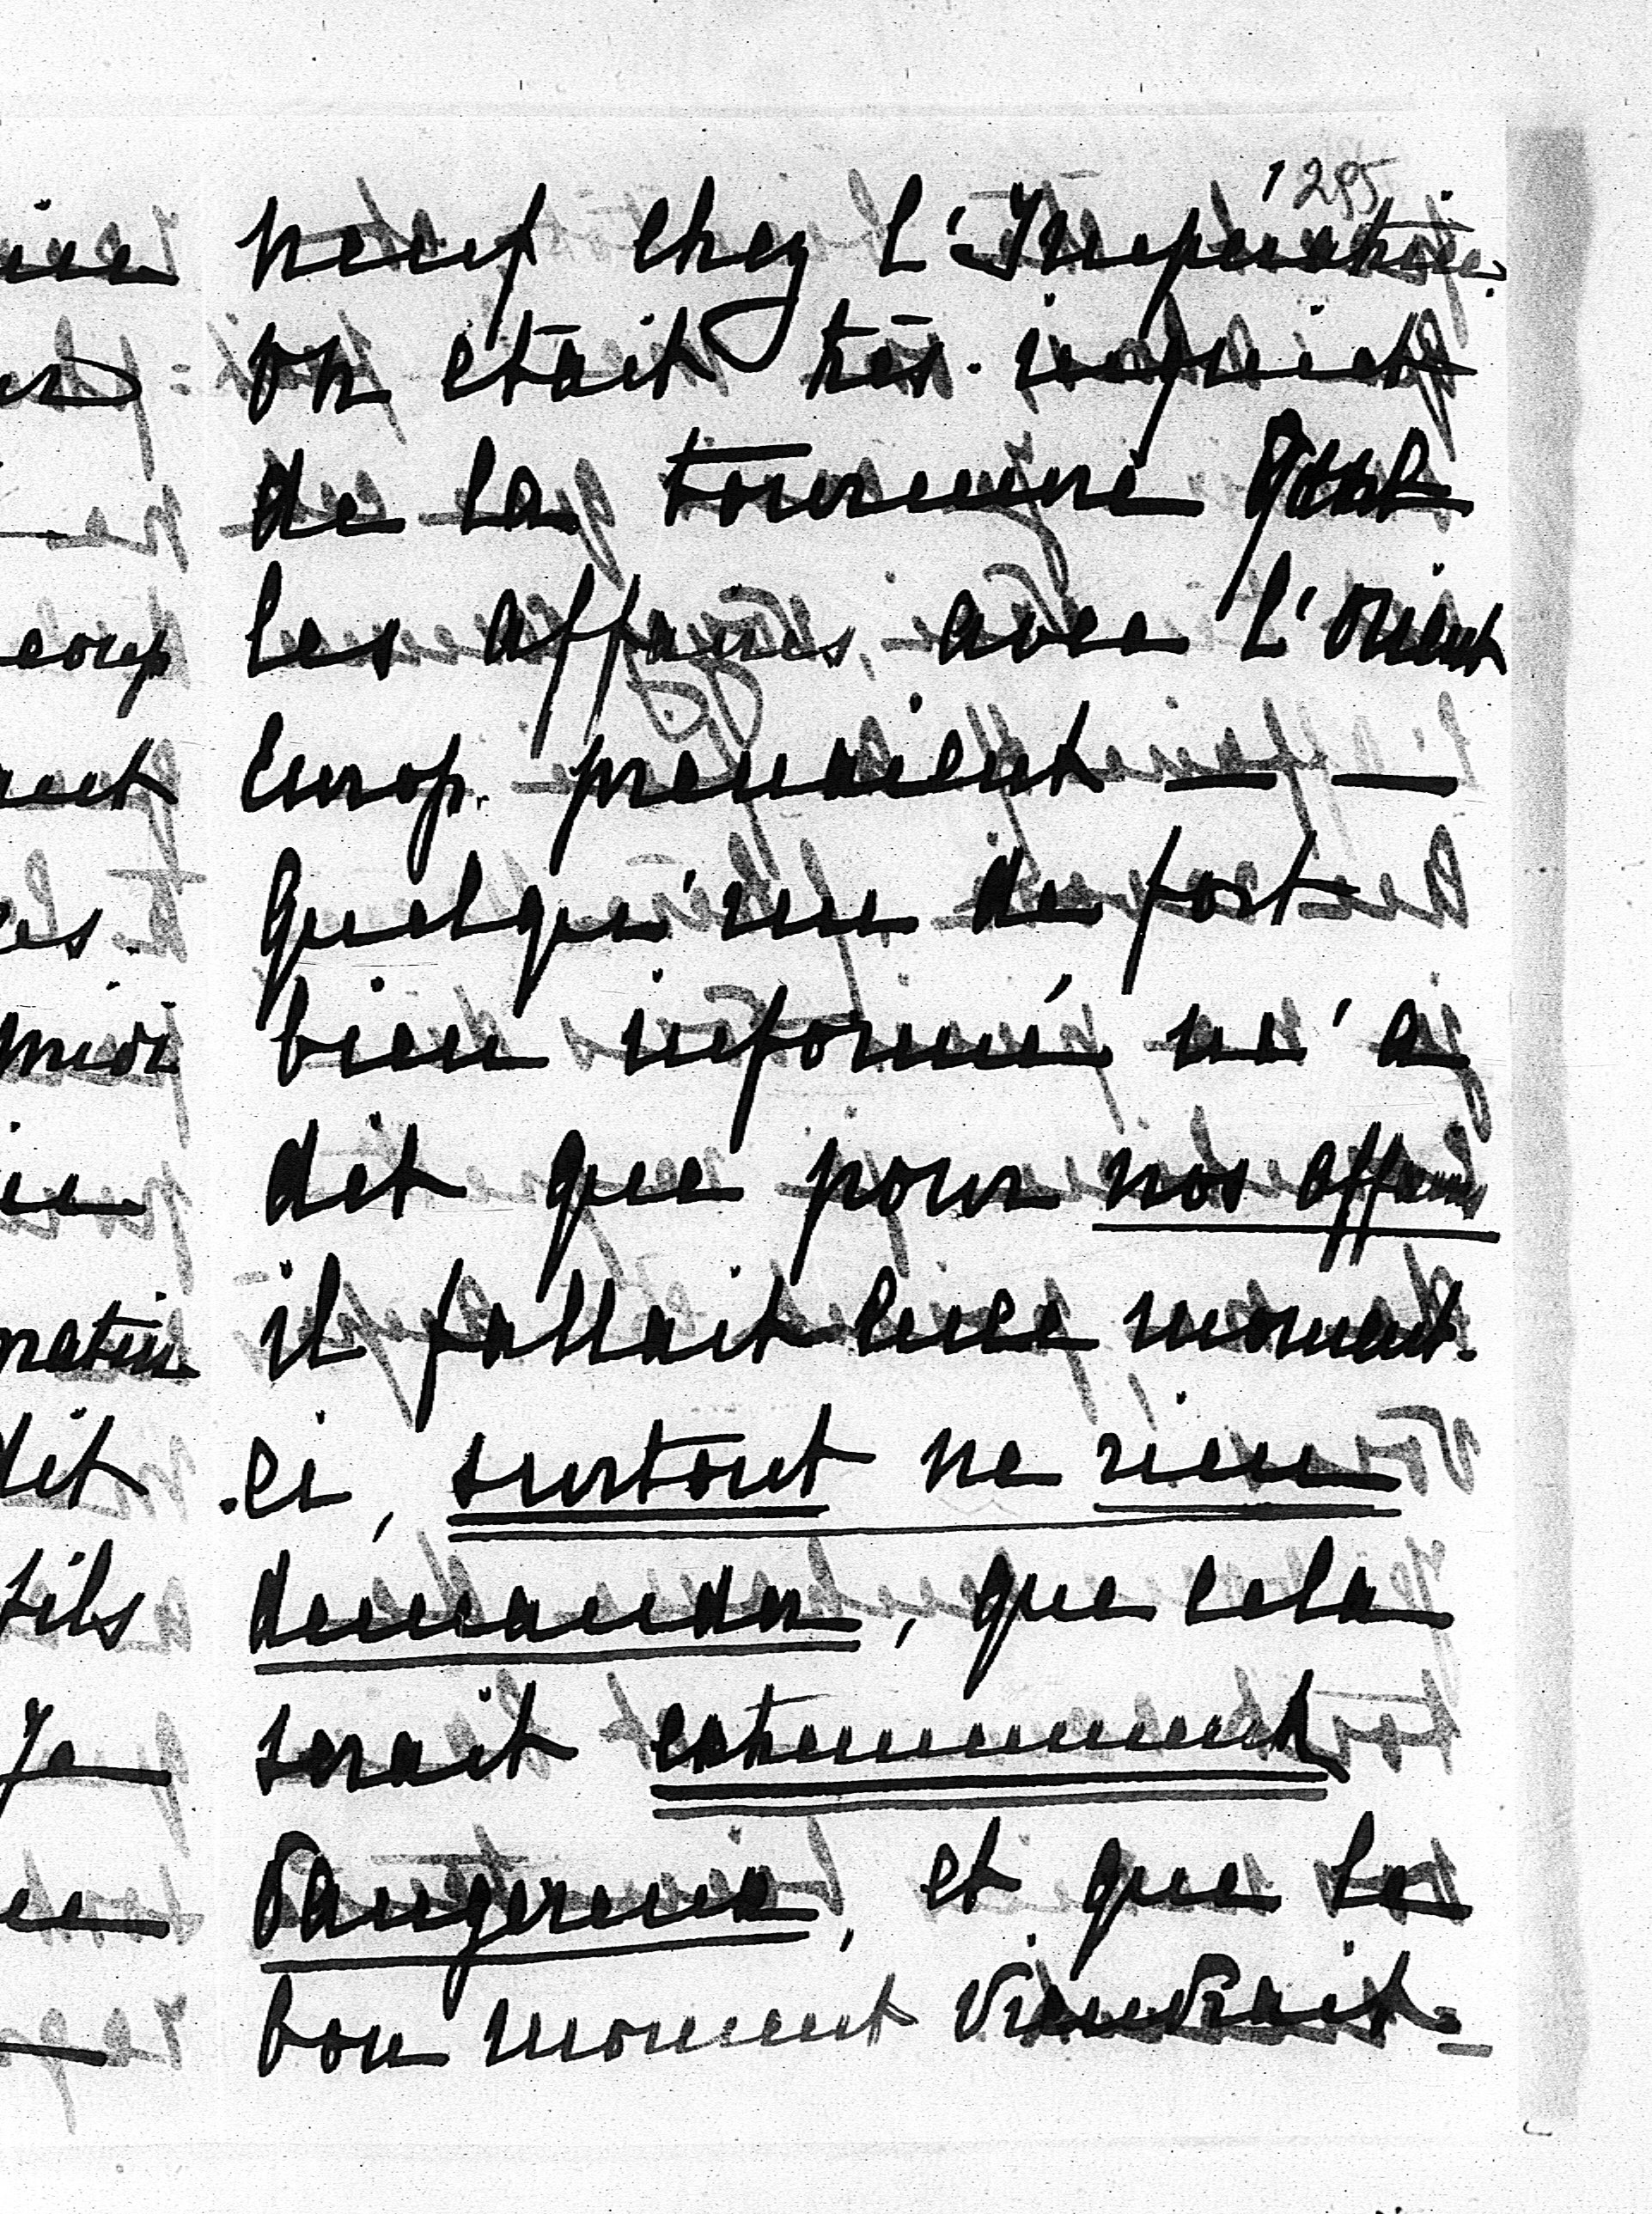 295
neuf chez l'Impératrice.
on était très-inquiet
de la tournure que
les affaires, avec l'Orient
Europ. prenaient — —
Quelqu'un de fort
bien informé m'a
dit que pour nos affaires
il fallait en ce moment-
-ci, surtout ne rien
demander, que cela
serait extrêmement
dangereux, et que le
bon moment viendrait.=